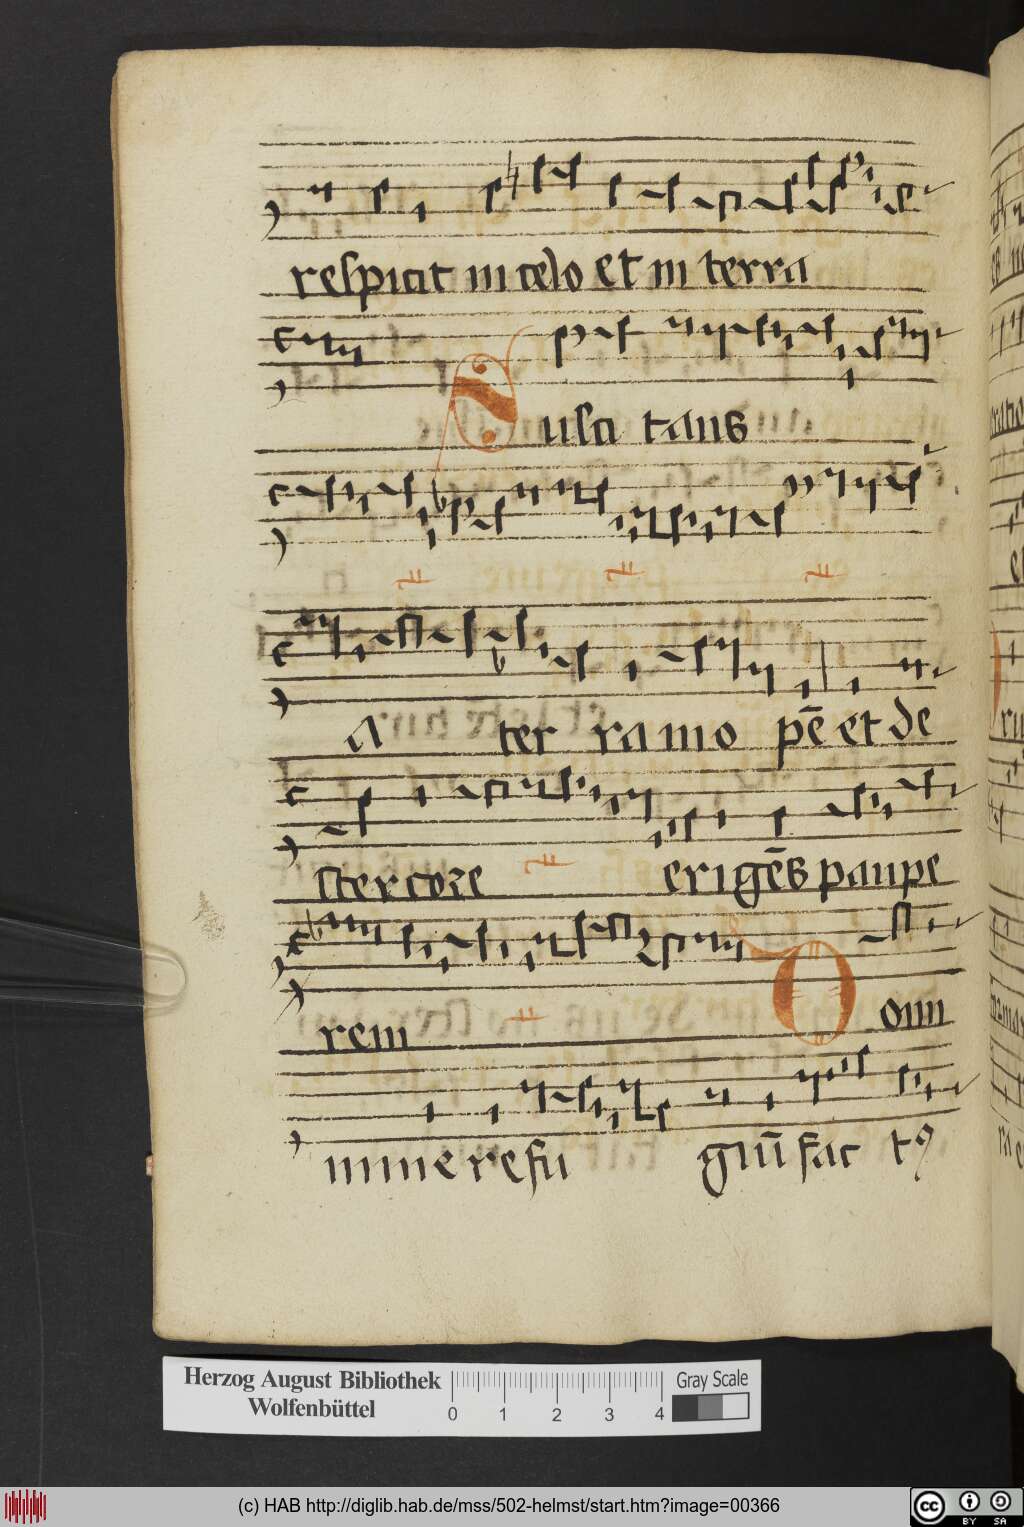 respicit in celo et in terra
Susci tans
a ter ra in o pē et de
stercore erigēs paupe
rem Domi
nime refu giū fac tꝰ
Herzog August Bibliothek
Wolfenbüttel
0 1 2 3 4
Gray Scale
(c) HAB http://diglib.hab.de/mss/502-helmst/start.htm?image=00366
cc BY SA